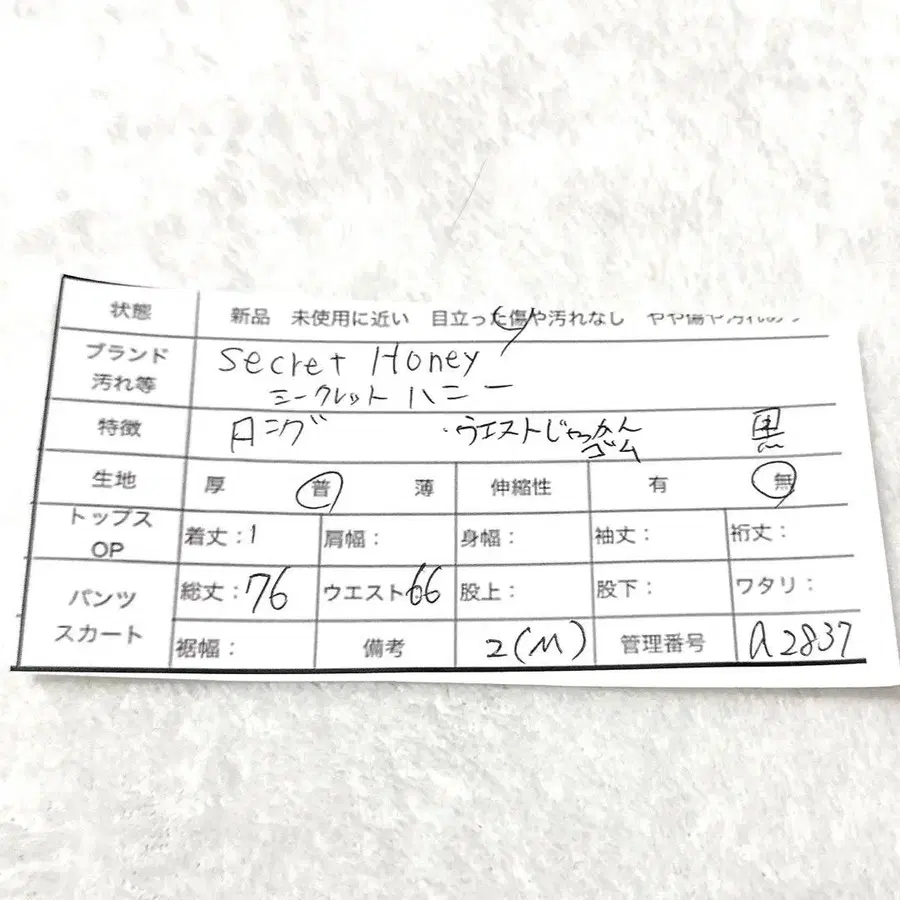 状態 新品 未使用に近い 目立った傷や汚れなし やや傷や汚れあり
ブランド Secret Honey
汚れ等 シークレット ハニー
特徴 ロング ・ウエストじゃっかん 黒
ゴム
生地 厚 普 薄 伸縮性 有 無
トップス 着丈:1 肩幅: 身幅: 袖丈: 裄丈:
OP
パンツ 総丈:76 ウエスト:66 股上: 股下: ワタリ:
スカート
裾幅: 備考 2(M) 管理番号 a2837